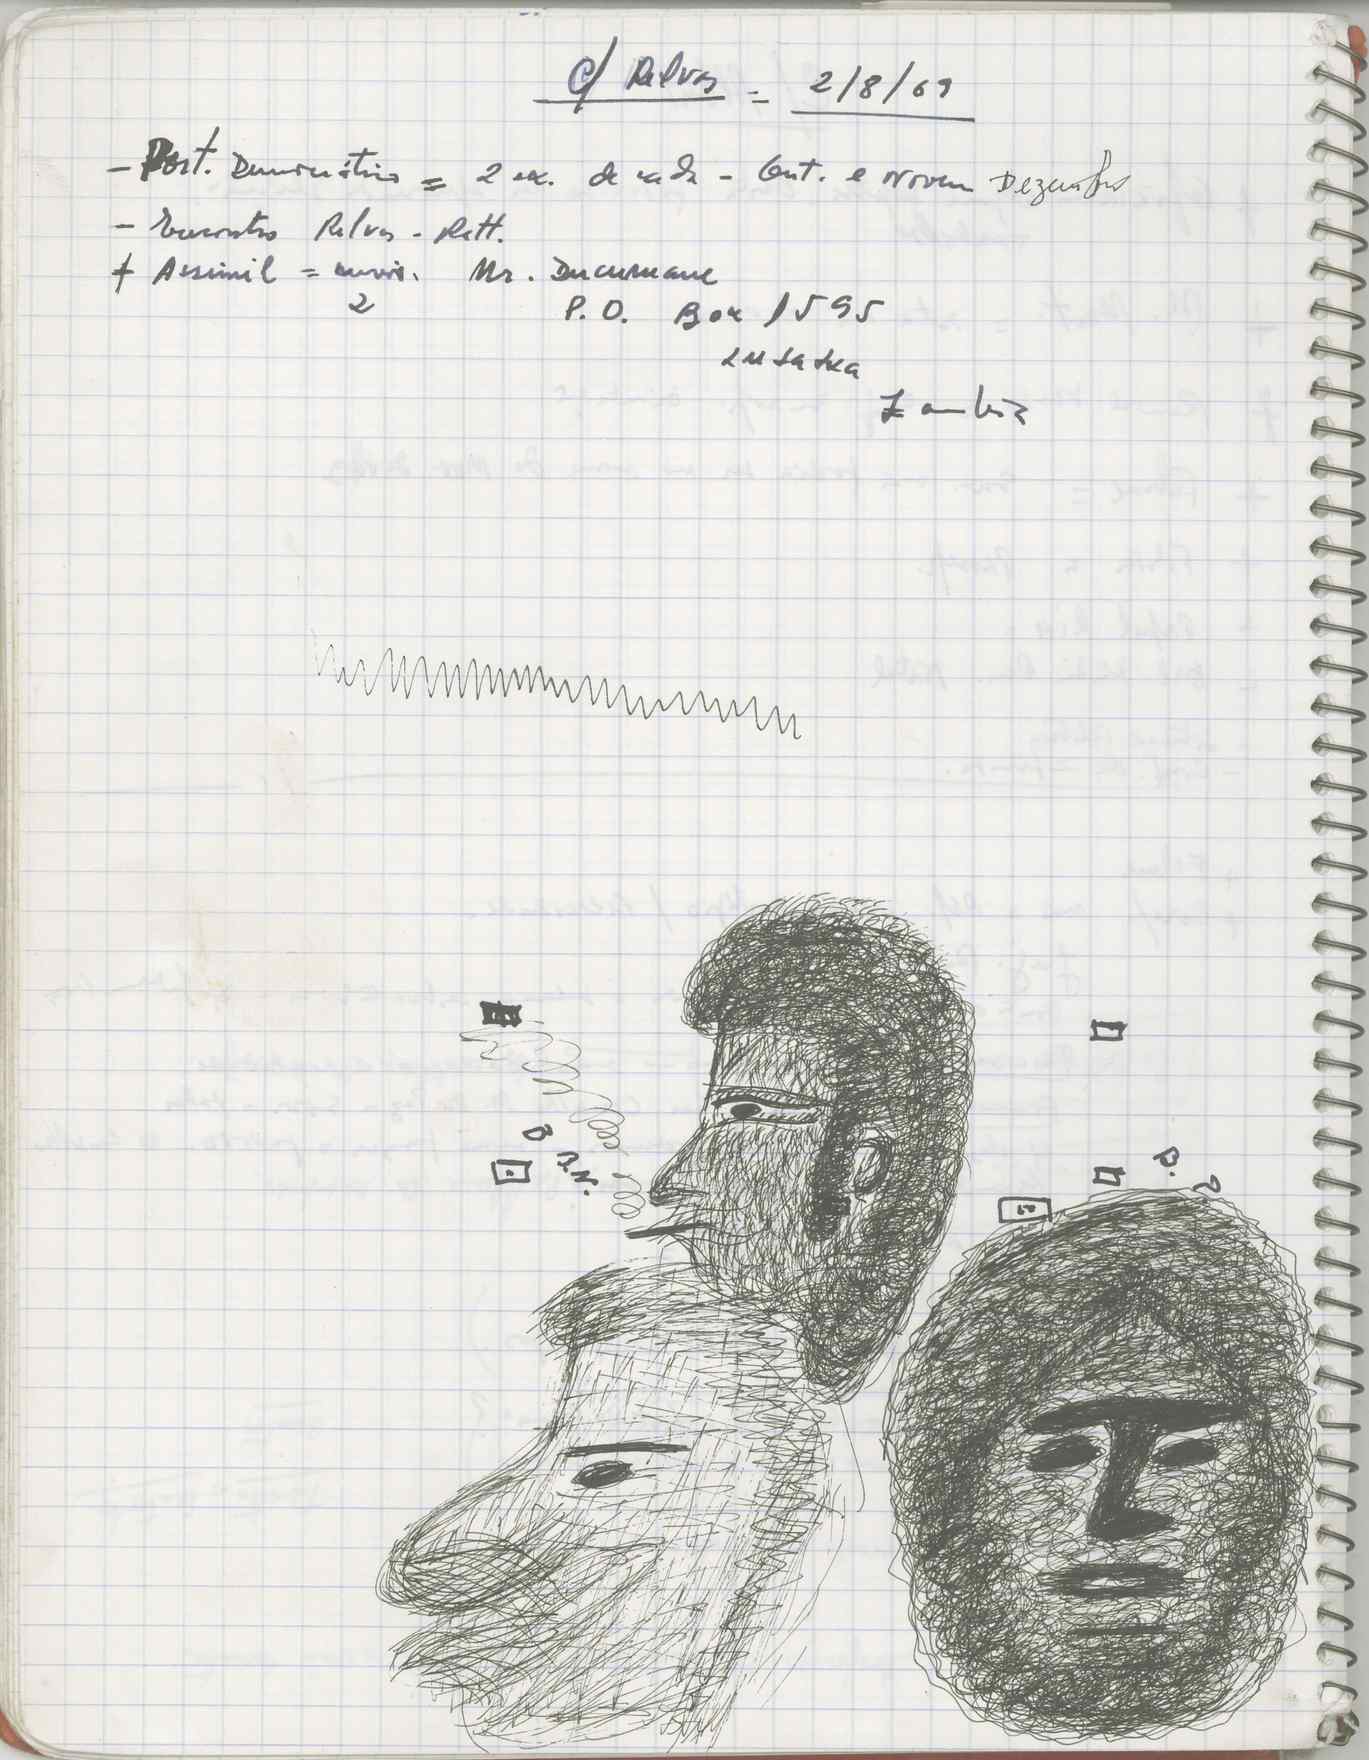 C/ Relvas = 2/8/69
- Port. Democrático = 2 ex. de cada - Out. e Novem Dezembro
- Encontro Relvas - Rett.
+ Assimil = envio. Mr. Ducumane
2 P.O. Box 1595
Lusaka
Zambia
B
B.N.
P.